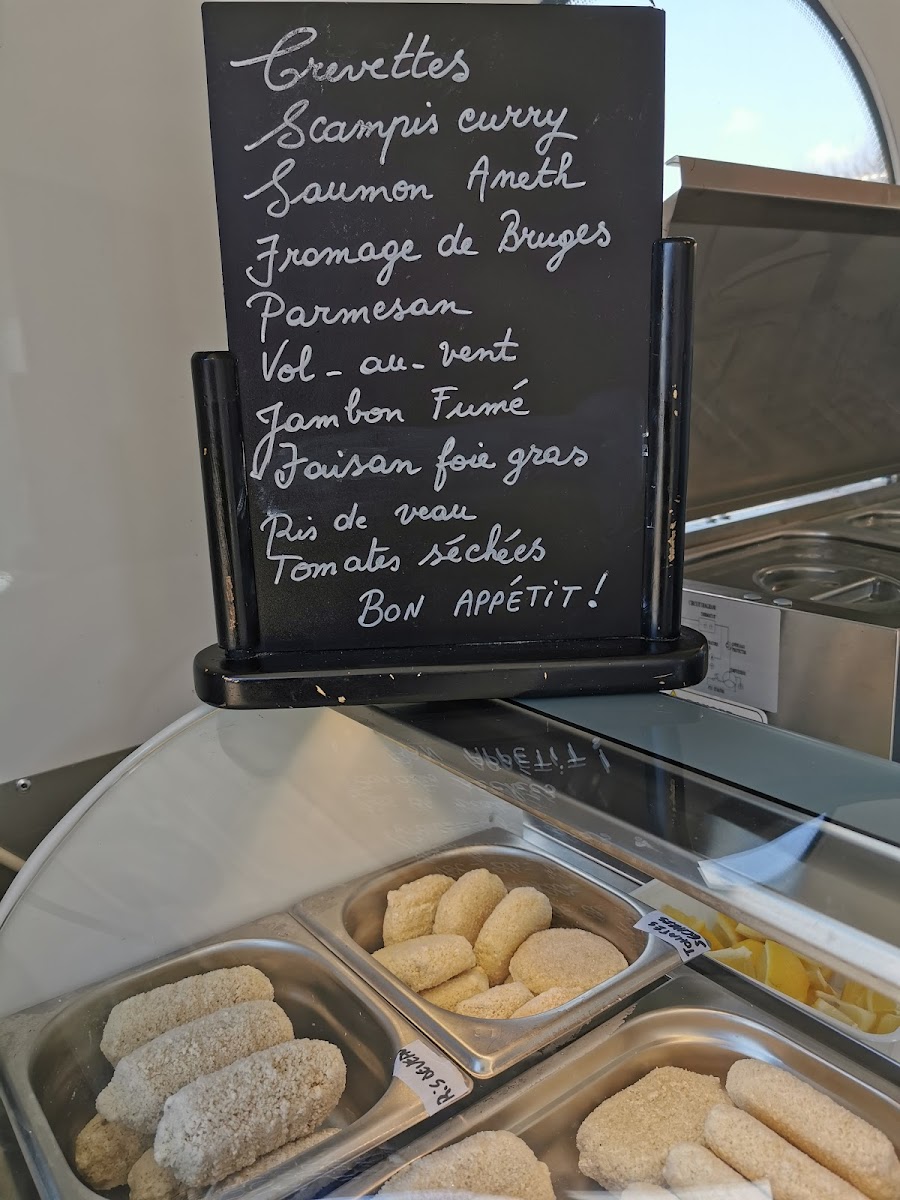 Crevettes
Scampis curry
Saumon Aneth
Fromage de Bruges
Parmesan
Vol-au-vent
Jambon Fumé
Faisan foie gras
Ris de veau
Tomates séchées
BON APPÉTIT!
TOMATES
SÉCHÉES
RIS DE VEAU